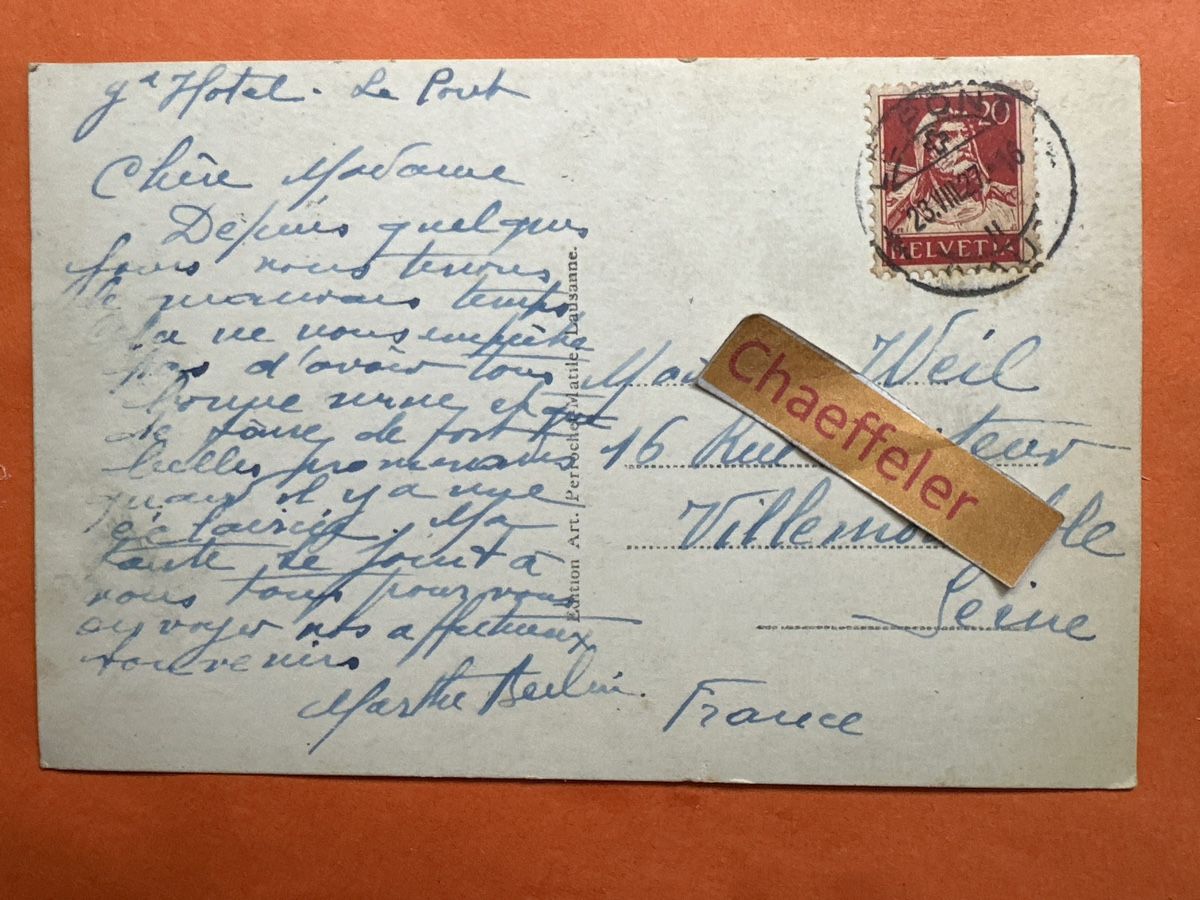 gd Hotel. Le Pont
Chère Madame
Depuis quelques
jours nous tenons
le mauvais temps
la ne nous empêche
pas d'avoir tous
bonne mine et
de faire de fort
belles promenades
quand il y a une
éclaircie. Ma
tante se joint à
nous tous pour vous
envoyer nos affectueux
souvenirs
Marthe
Edition Art. Perrochet-Matile, Lausanne.
LE PONT
23.VIII.27
20
HELVETIA
Weil
16 Rue
Seine
France
Chaeffeler